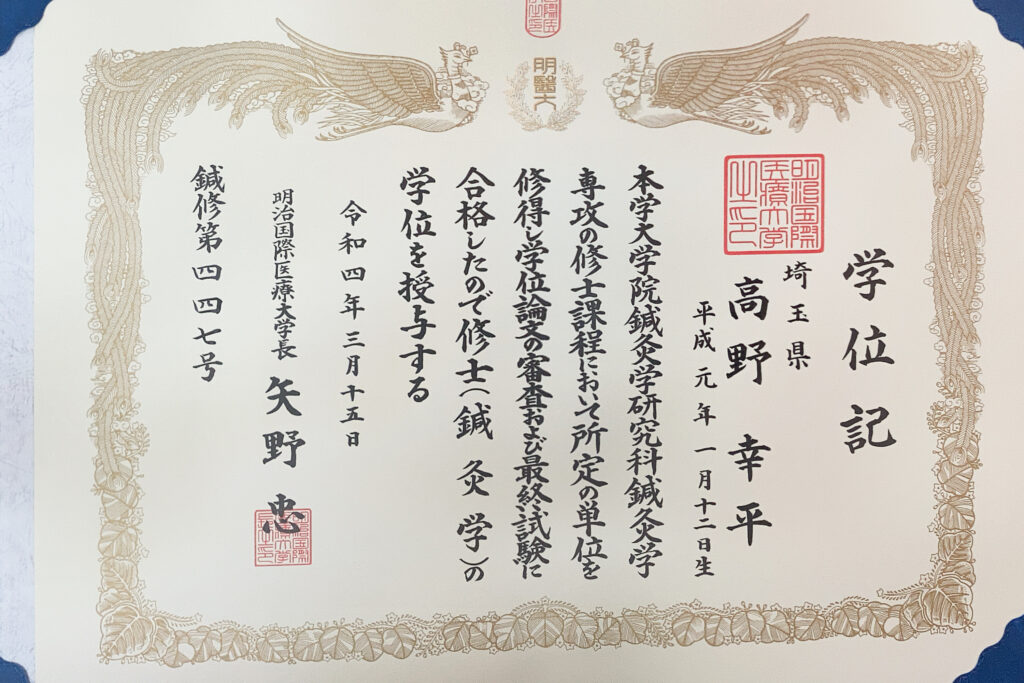 明醫大
学位記
埼玉県
高野 幸平
平成元年一月十二日生
明治国際医療大学之印
本学大学院鍼灸学研究科鍼灸学
専攻の修士課程において所定の単位を
修得し学位論文の審査および最終試験に
合格したので修士(鍼灸学)の
学位を授与する
令和四年三月十五日
明治国際医療大学長 矢野 忠
鍼修第四四七号